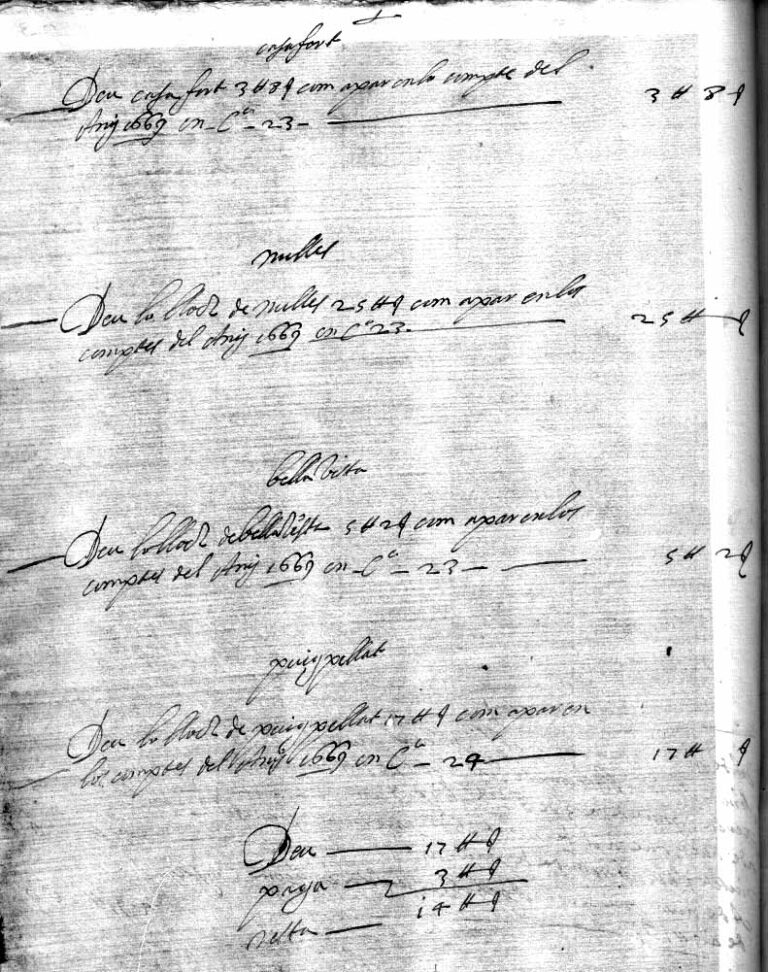 casafort
Deu casafort 3 ₶ 8 ₰ com apar en lo compte del 3 ₶ 8 ₰
Any 1669 en C.ᵃ 23
nulles
Deu lo lloch de nulles 25 ₶ ₰ com apar en los 25 ₶ ₰
comptes del Any 1669 en C.ᵃ 23
bella vista
Deu lo lloch de bella vista 5 ₶ 2 ₰ com apar en los
comptes del Any 1669 en C.ᵃ 23 5 ₶ 2 ₰
puigpellat
Deu lo lloch de puigpellat 17 ₶ ₰ com apar en
los comptes del Any 1669 en C.ᵃ 24 17 ₶ ₰
Deu 17 ₶ ₰
paga 3 ₶ ₰
resta 14 ₶ ₰